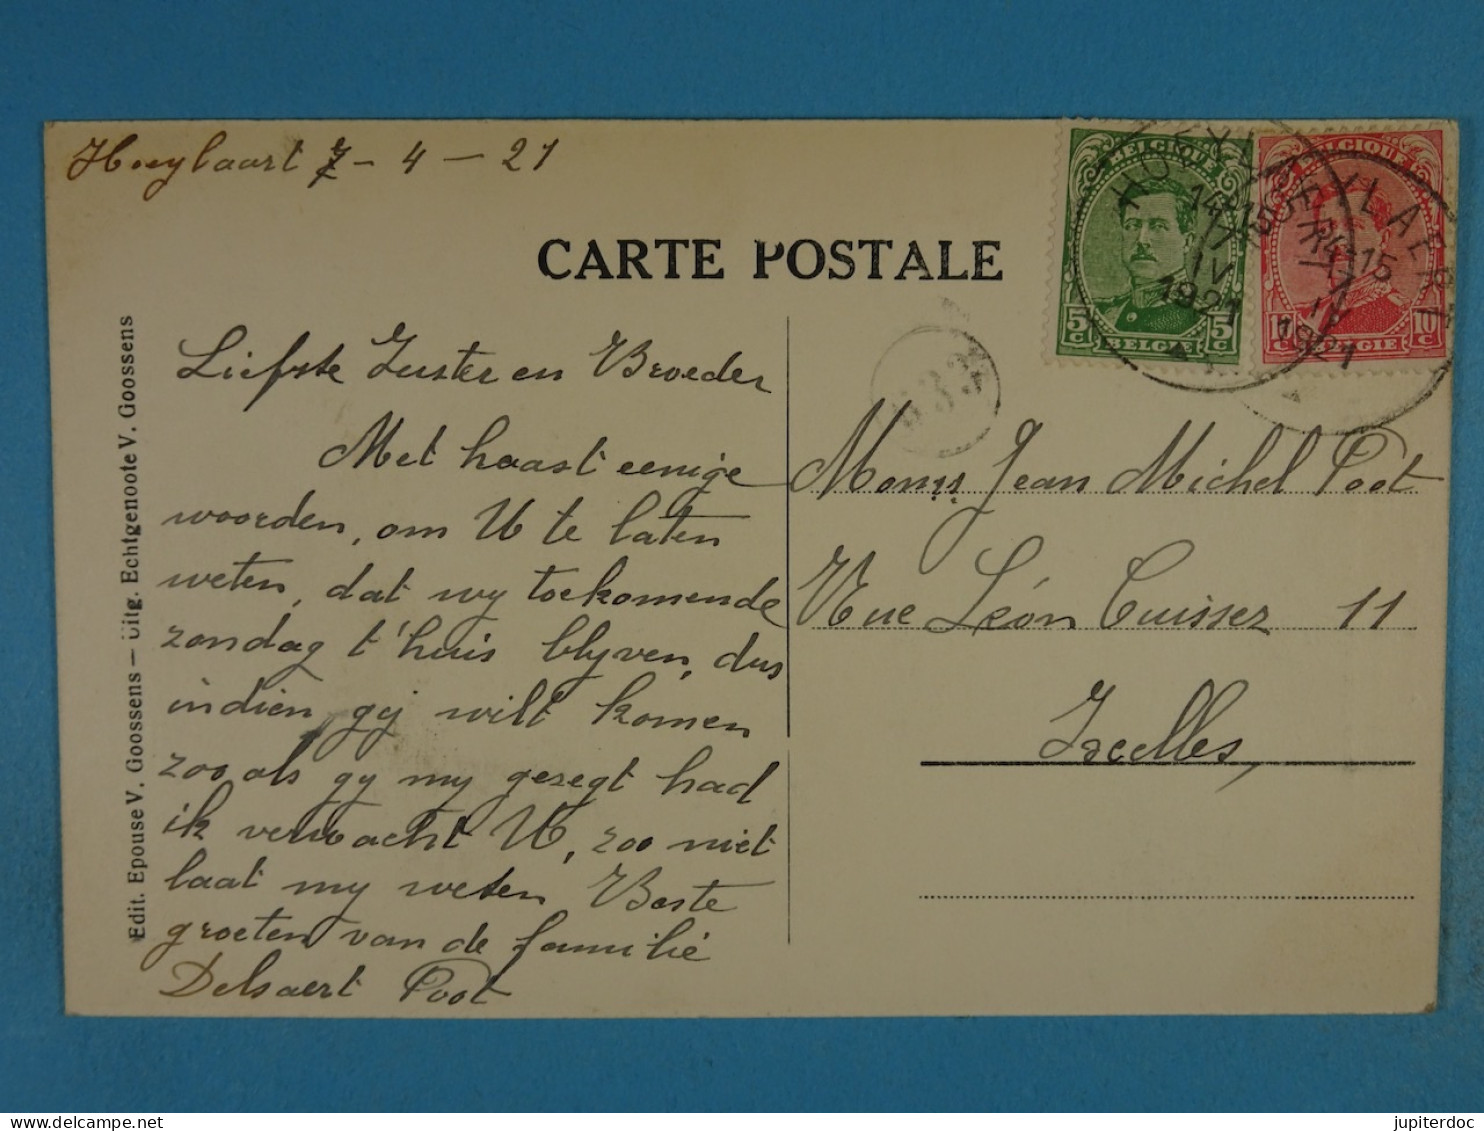 Hoeylaart 7 - 4 - 21
CARTE POSTALE
Edit. Epouse V. Goossens — Uitg. Echtgenoote V. Goossens
Liefste Zuster en Broeder
Met haast eenige
woorden, om U te laten
weten, dat wy toekomende
zondag t'huis blyven, dus
indien gy wilt komen
zoo als gy my gezegt had
ik verwacht U, zoo niet
laat my weten Beste
groeten van de familie
Delsaert Poot
BELGIQUE
5c 5c
BELGIE
BELGIQUE
10c
BELGIE
HOEYLAERT
14-15
7
IV
1921
HOEYLAERT
14-15
IV
1921
Monsr Jean Michel Poot
Rue Léon Cuissez 11
Ixelles,
jupiterdoc